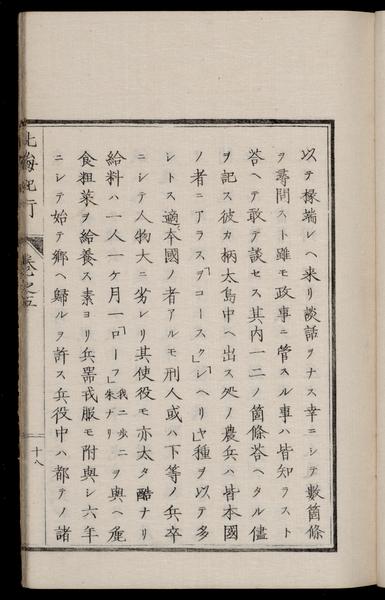 以テ椽端レヘ来リ談話ヲナス幸ニシテ數箇條
ヲ尋問スト雖モ政事ニ管スル事ハ皆知ラスト
荅ヘテ敢テ談セス其内一二ノ箇條荅ヘタル儘
ヲ記ス彼カ柄太島中ヘ出ス処ノ農兵ハ皆本國
ノ者ニアラス「ヲコースク」「シヘリヤ」種ヲ以テ多
シトス適本國ノ者アルモ刑人或ハ下等ノ兵卒
ニシテ人物大ニ劣レリ其使役モ亦太タ酷ナリ
給料ハ一人一ケ月一「ローフ」我二歩ニ朱ナリヲ與ヘ麁
食粗菜ヲ給養ス素ヨリ兵器戎服モ附與シ六年
ニシテ始テ郷ヘ歸ルヲ許ス兵役中ハ都テノ諸
北海紀行
巻之五
十八